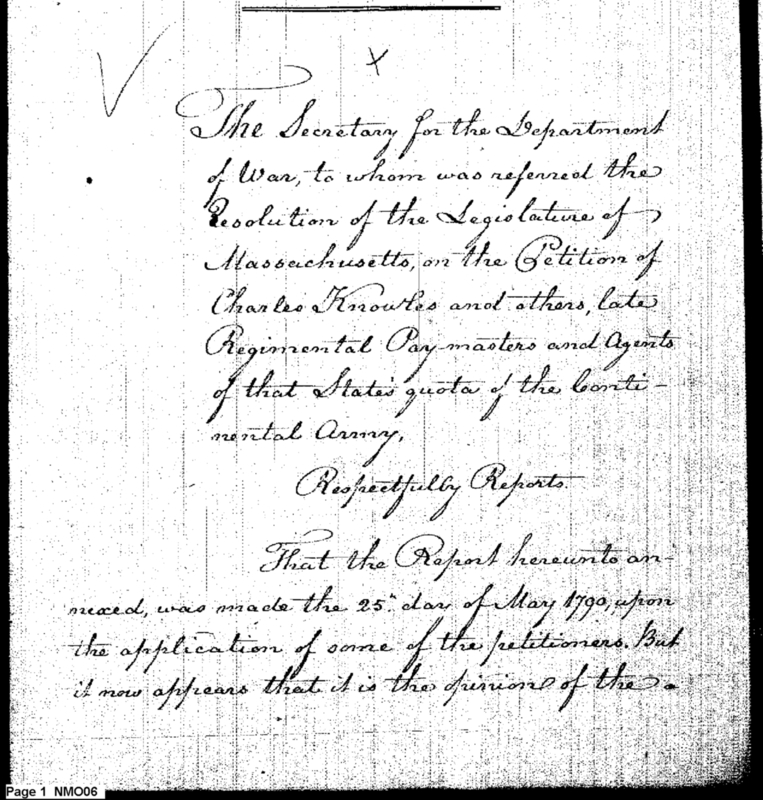 The Secretary for the Department
of War, to whom was referred the
Resolution of the Legislature of
Massachusetts, on the Petition of
Charles Knowles and others, late
Regimental Pay-masters and Agents
of that State's quota of the Conti-
nental Army,
Respectfully Reports.
That the Report hereunto an-
nexed, was made the 25th. day of May 1790, upon
the application of some of the petitioners. But
it now appears that it is the opinion of the
Page 1 NMO06